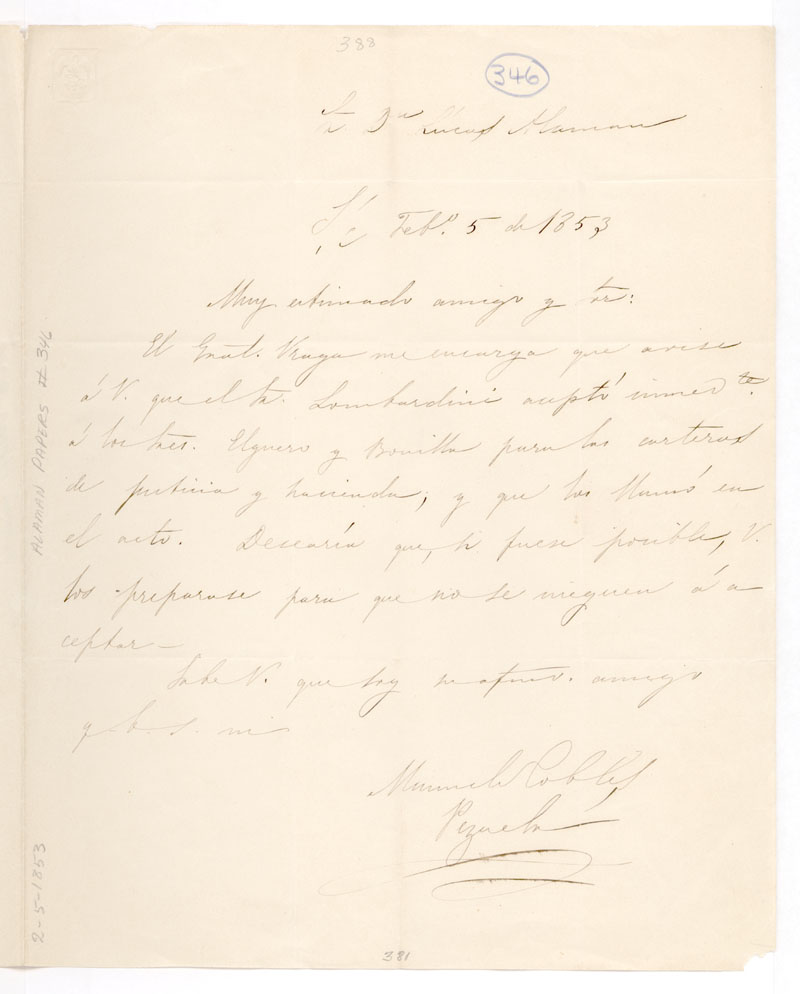 388
346
Sr. Dn Lucas Alaman
Feb.o 5 de 1853
Muy estimado amigo y Sor:
El Gral. Uraga me encarga que avise
á V. que el Sr. Lombardini aceptó inmed.te
á los Sres. Elguero y Bonilla para las carteras
de justicia y hacienda, y que los llamó en
el acto. Desearía que, si fuese posible, V.
los preparase para que no se nieguen á a-
ceptar—
Sabe V. que soy su afmo. amigo
q b. s. m
Manuel Robles
Pezuela
381
ALAMAN PAPERS # 346
2-5-1853